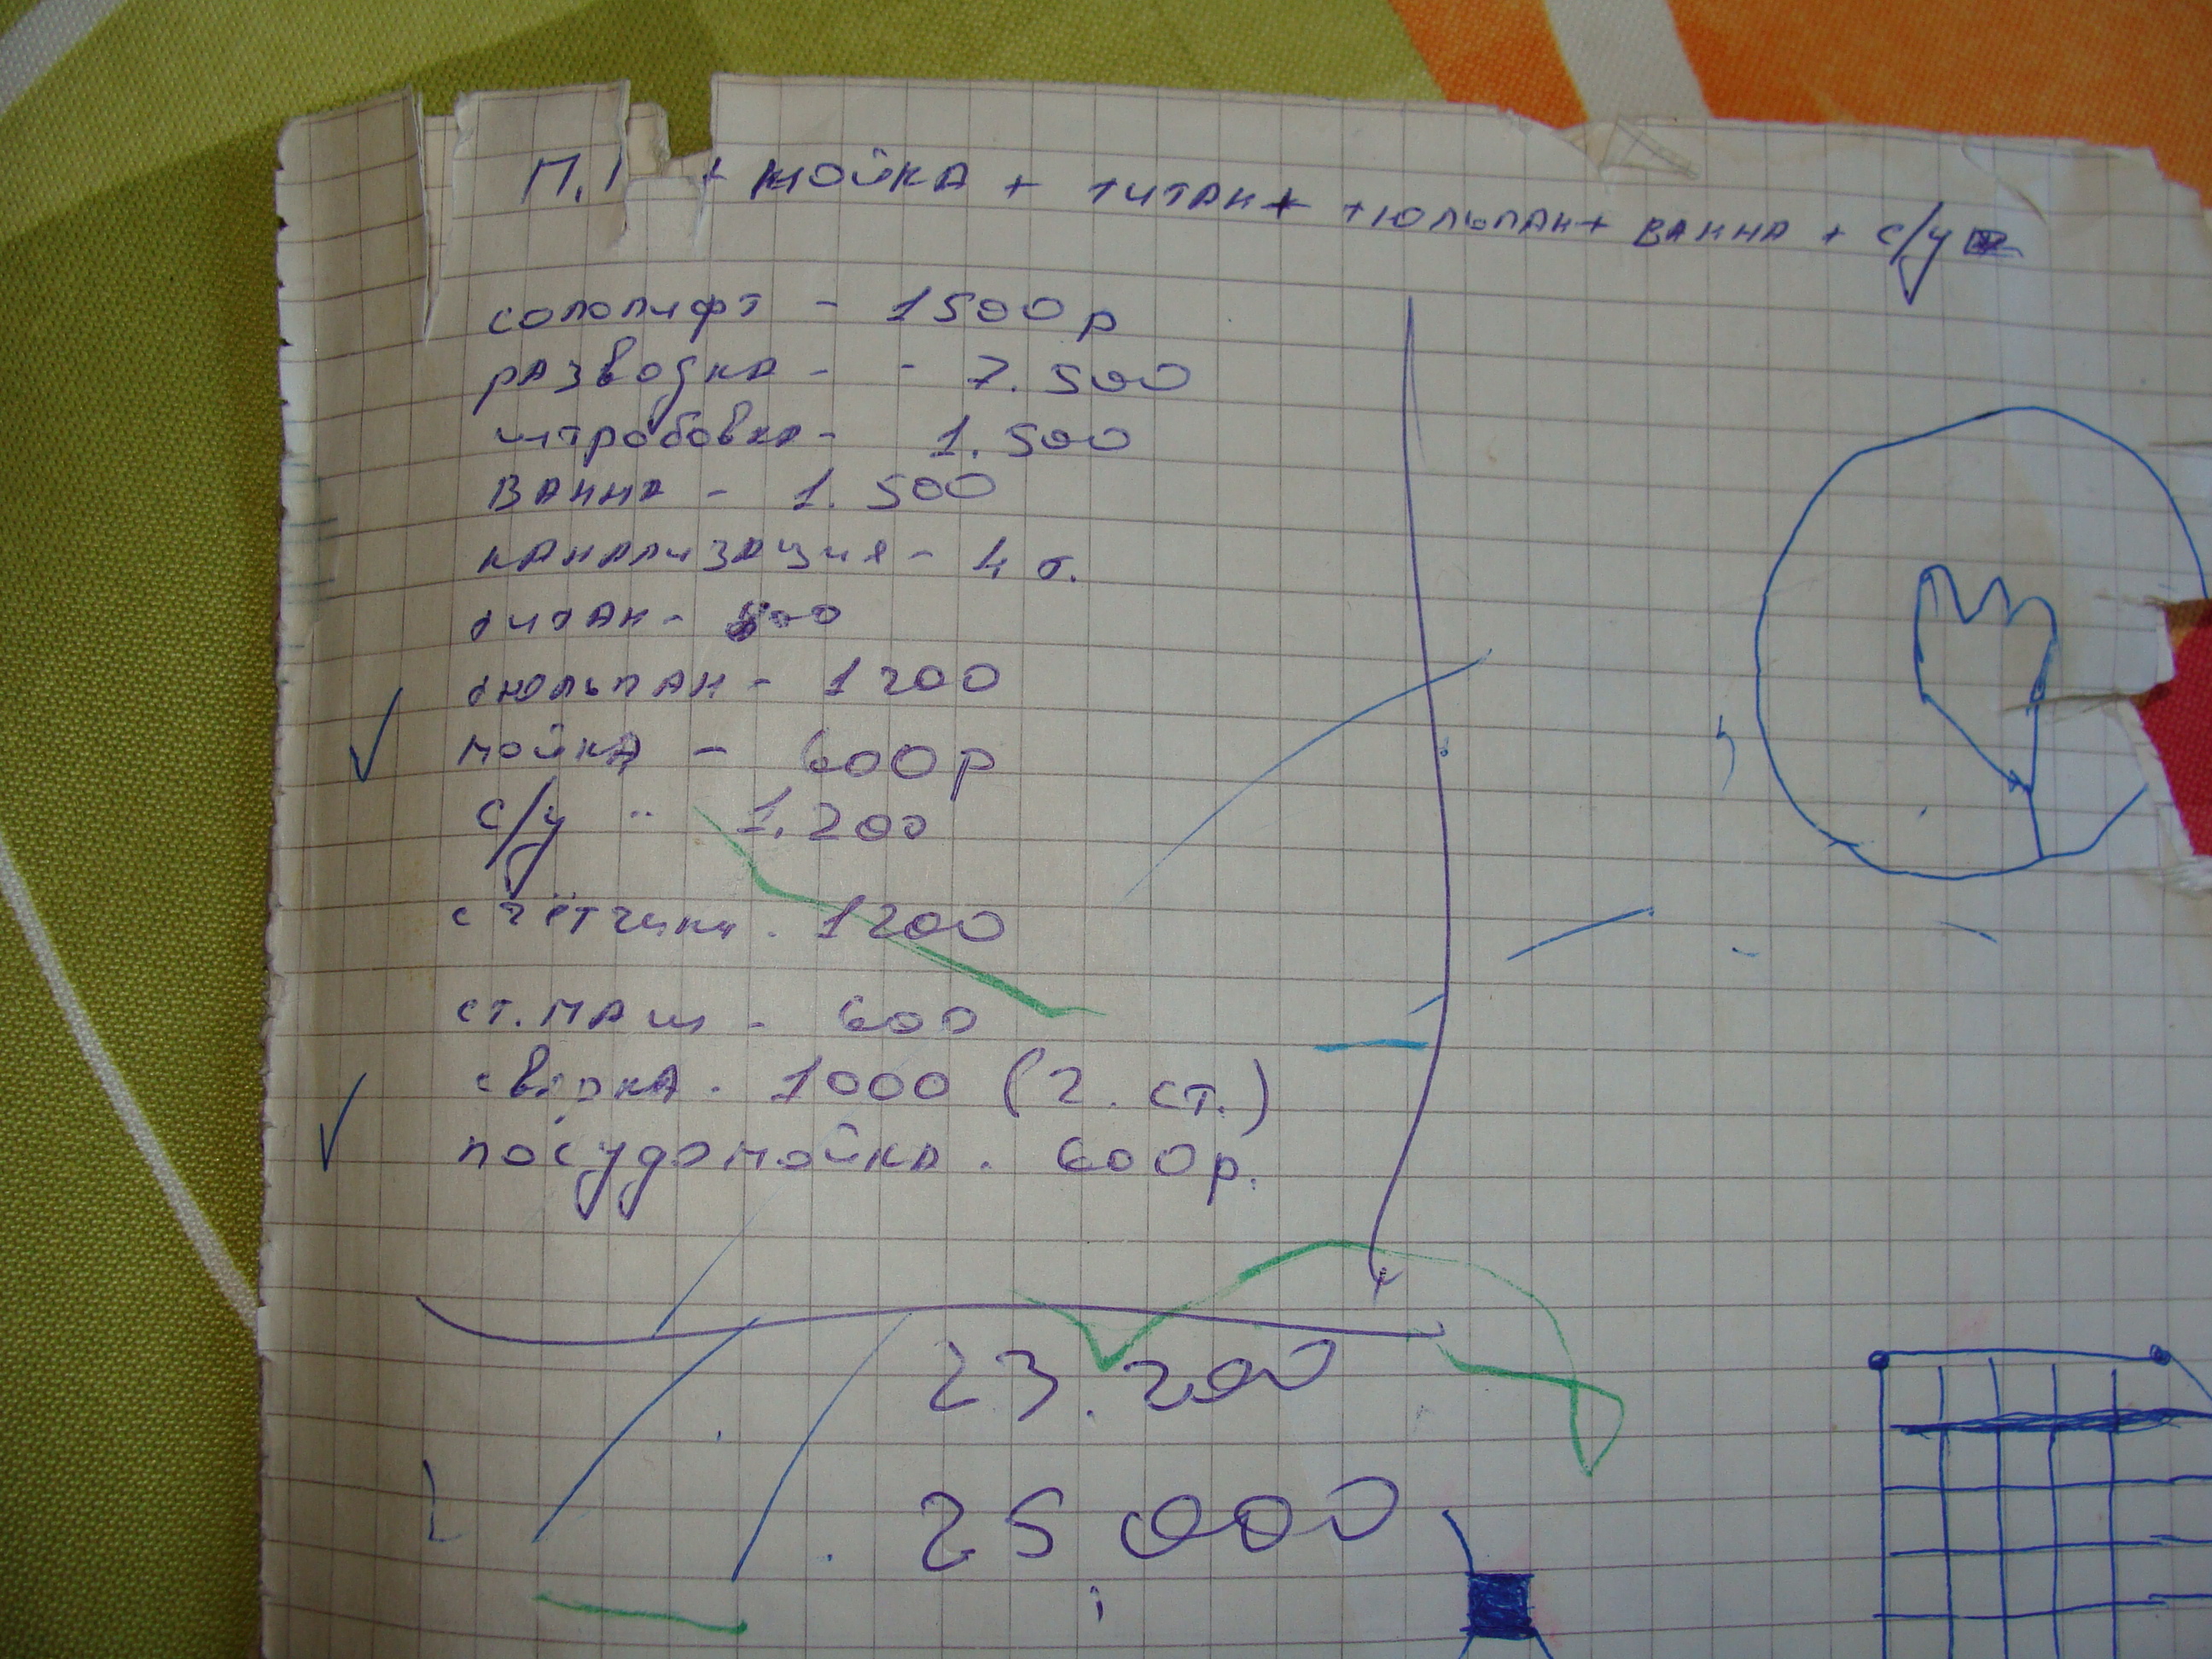 + мойка + титан + тюльпан + ванна + с/у
сололифт - 1500р
разводка - - 7.500
штробовка - 1.500
ванна - 1.500
канализация - 4 т.
титан -
тюльпан - 1200
мойка - 600р
с/у - 1.200
счётчики - 1200
ст. маш - 600
сварка - 1000 (2. ст.)
посудомойка - 600р.
23.200
25000